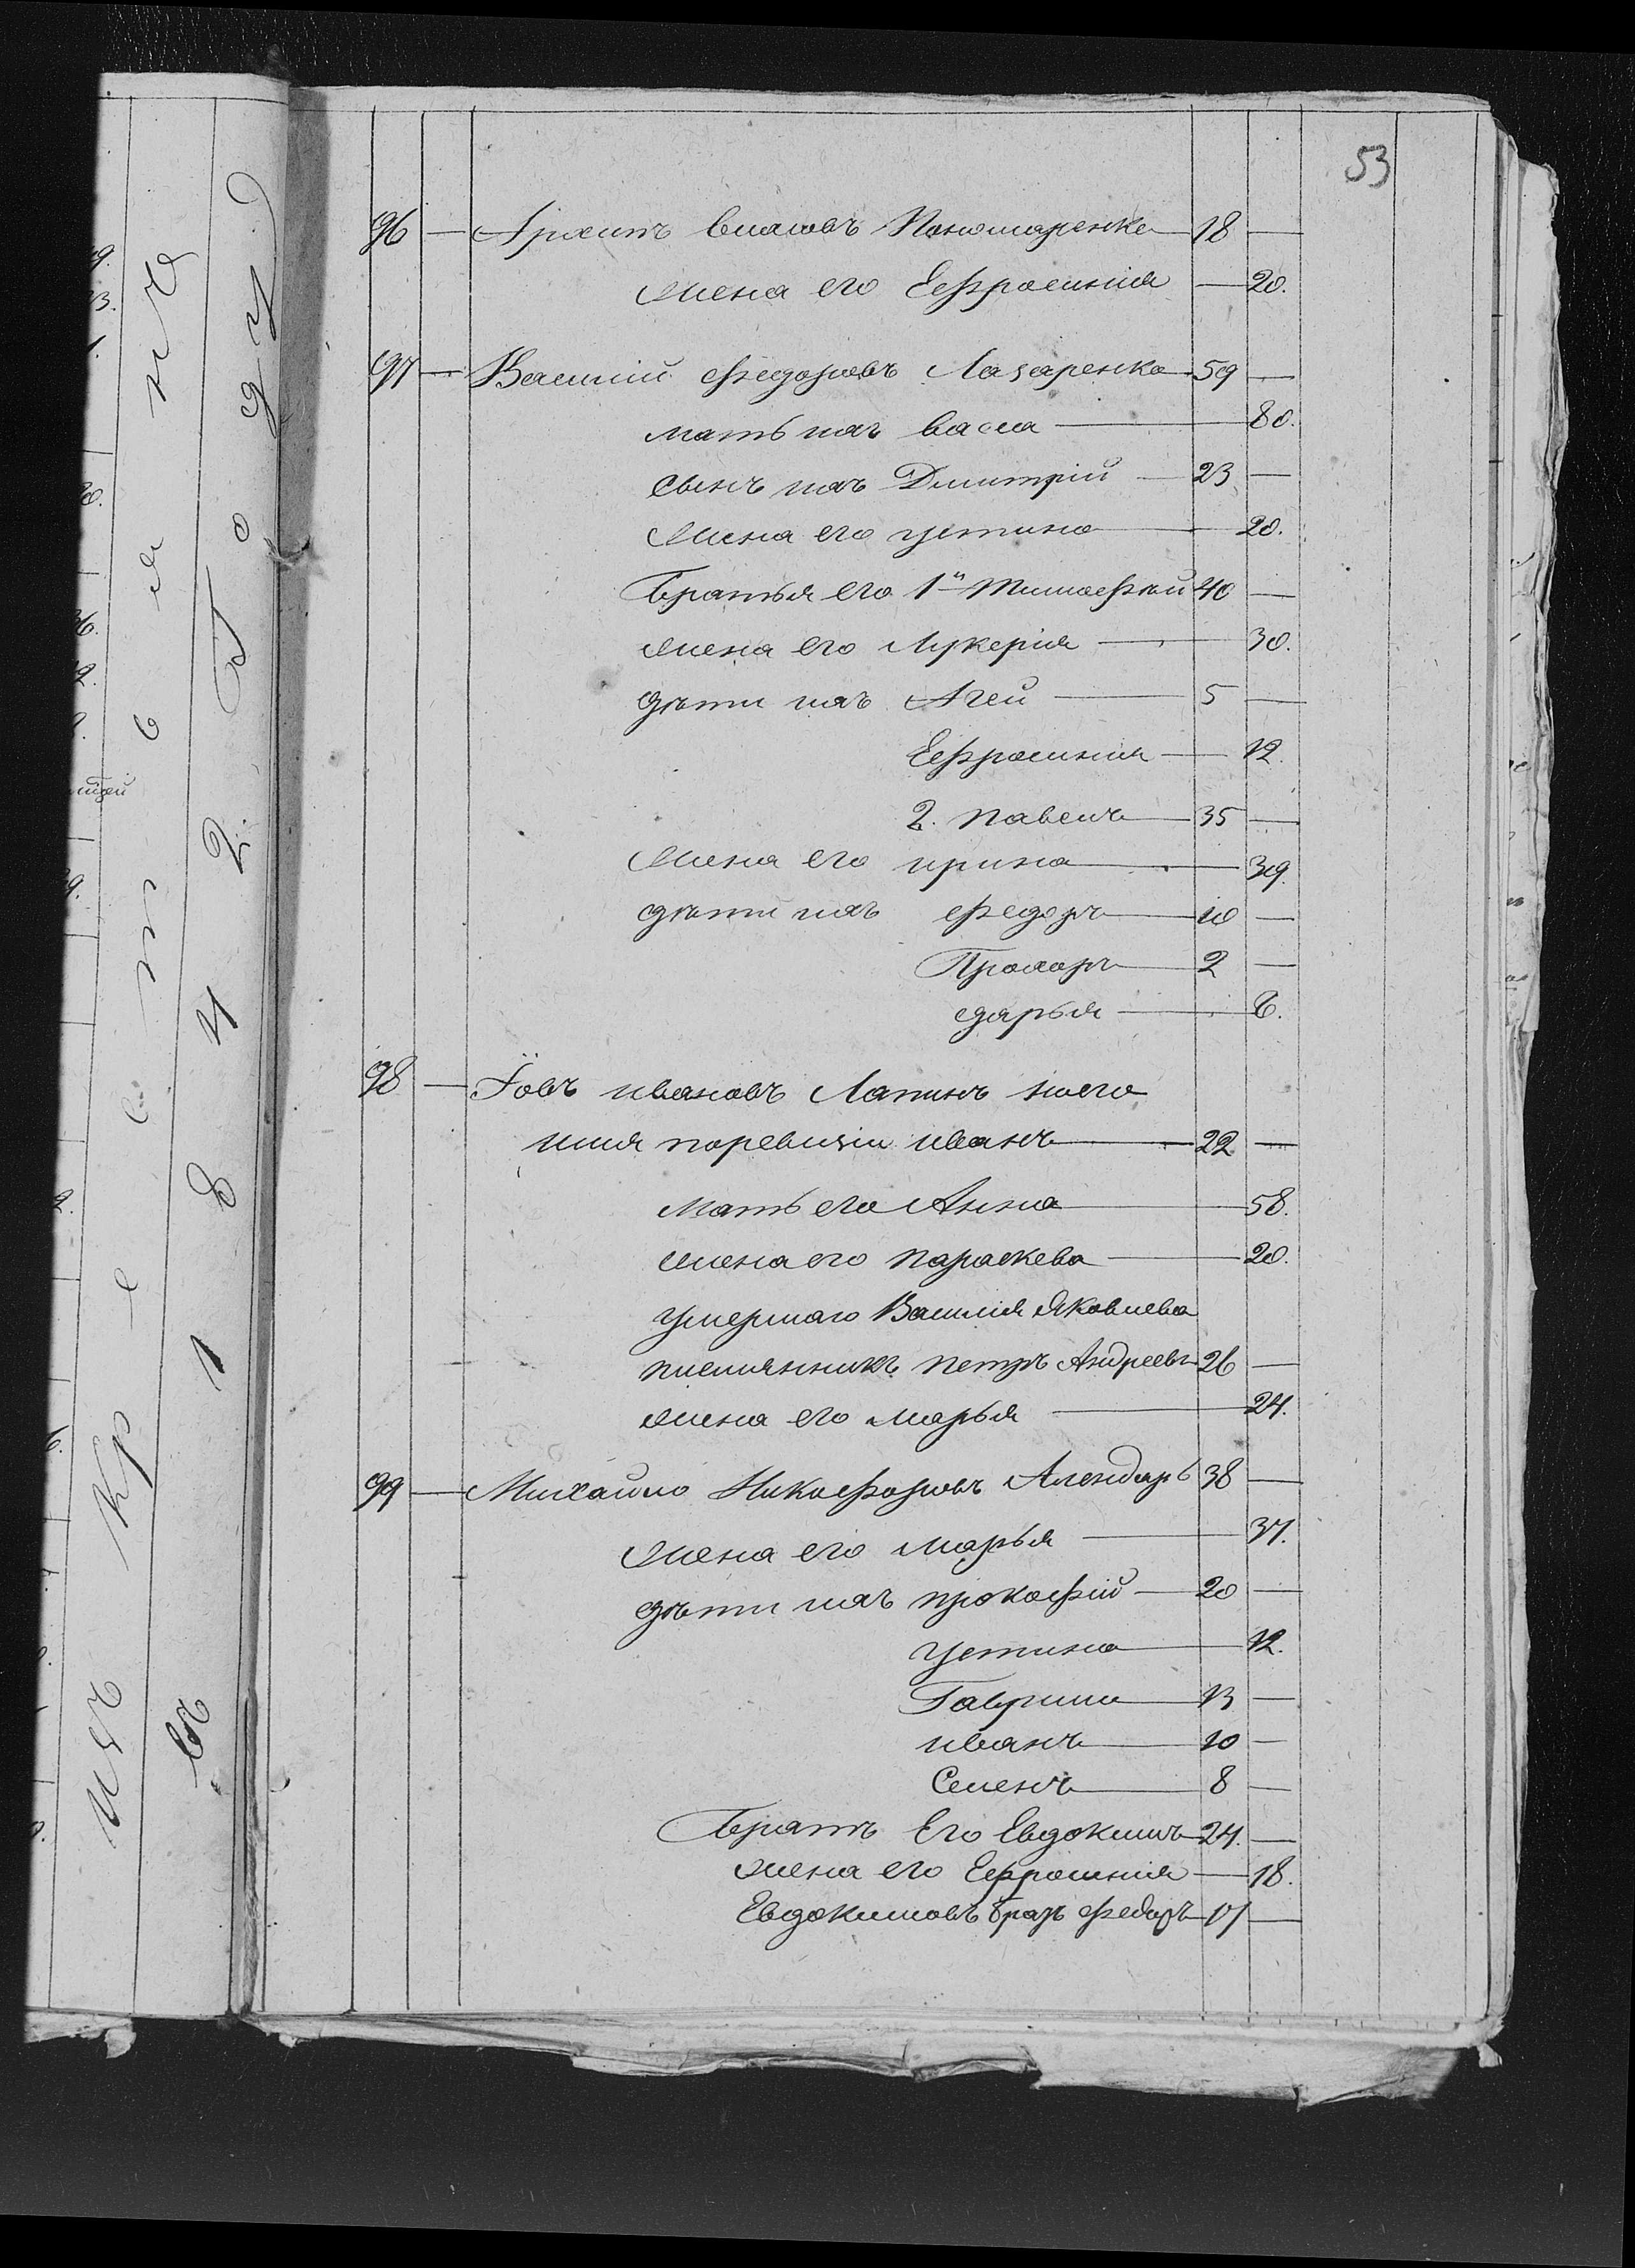 53
96 — Архипъ Власовъ Пономаренко 18 —
жена его Ефросинія — 20.
97 — Василій Федоровъ Лазаренко 59 —
мать ихъ васса — 80.
сынъ ихъ Дмитрій — 23 —
жена его устина — 20.
Братья его 1й Тимофѣй 40 —
жена его Лукерія — 30.
дѣти ихъ Агей — 5 —
Ефросинія — 12.
2. павелъ — 35 —
жена его ирина — 39.
дѣти ихъ федоръ — 10 —
Прохоръ — 2 —
дарья — 6.
98 — Іовъ ивановъ Лапинъ коего
имя поревизіи иванъ — 22 —
мать его Анна — 58.
жена его параскева — 20.
умершаго Василія Яковлева
племянникъ петръ Андреевъ 26 —
жена его марья — 24.
99 — Михайло Никофоровъ Александръ 38 —
жена его марья — 37.
дѣти ихъ прокофій — 20 —
устина — 12.
Гаврило — 13 —
иванъ — 10 —
Семенъ — 8 —
Братъ Его Евдокимъ — 24. —
жена его Ефросинія — 18.
Евдокимовъ братъ федоръ — 17 —